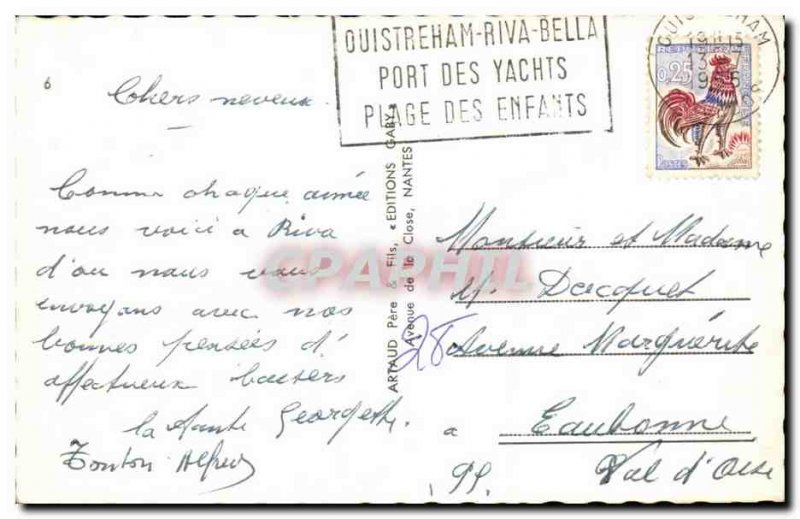 OUISTREHAM-RIVA-BELLA
PORT DES YACHTS
PLAGE DES ENFANTS
OUISTREHAM
0,25
6
Cohers neveux
Comme chaque année
nous voici a Riva
d'ou nous vous
envoyons avec nos
bonnes pensées d'
affectueux baisers
la tante Georgette.
Tonton Alfred
ARTAUD Père & Fils, «EDITIONS GABY»
Avenue de la Close, NANTES
CPAPHIL
Monsieur et Madame
M. Dacquet
28 Avenue Marguerite
a Eaubonne
Val d'Oise